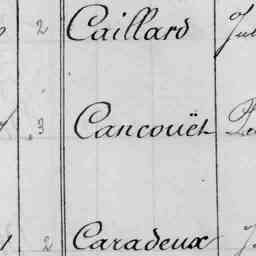 2 Caillard Jul
3 Cancouët
2 Caradeux